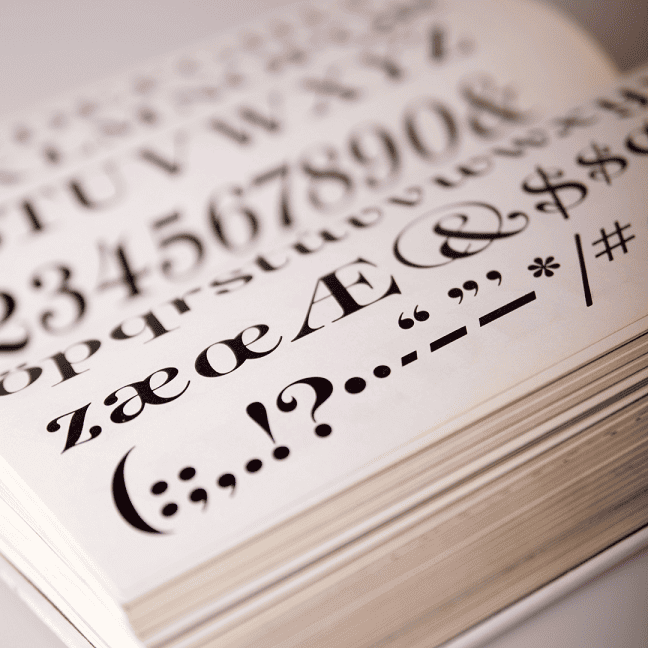 STUVWXYZ
234567890&
opqrstuvwx
zæœÆ&$$
“”’*/#
(:;,.!?..-–—